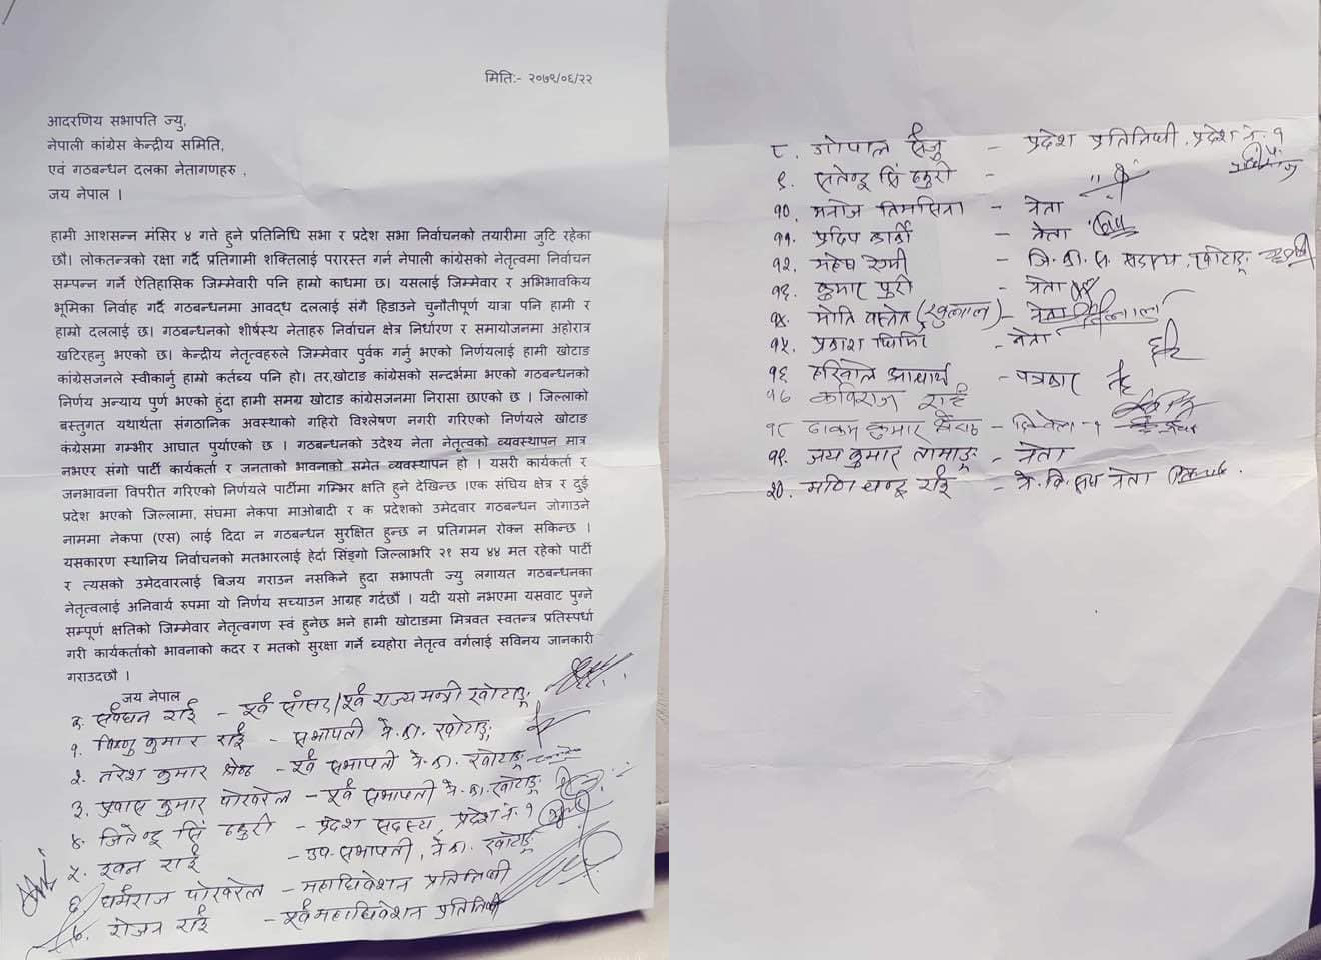 मितिः- २०७९/०६/२२
आदरणिय सभापति ज्यु,
नेपाली कांग्रेस केन्द्रीय समिति,
एवं गठबन्धन दलका नेतागणहरु ,
जय नेपाल ।
हामी आशसन्न मंसिर ४ गते हुने प्रतिनिधि सभा र प्रदेश सभा निर्वाचनको तयारीमा जुटि रहेका
छौ। लोकतन्त्रको रक्षा गर्दै प्रतिगामी शक्तिलाई परारस्त गर्न नेपाली कांग्रेसको नेतृत्वमा निर्वाचन
सम्पन्न गर्ने ऐतिहासिक जिम्मेवारी पनि हाम्रो काधमा छ। यसलाई जिम्मेवार र अभिभावकिय
भूमिका निर्वाह गर्दै गठबन्धनमा आवद्ध दललाई संगै हिडाउने चुनौतीपूर्ण यात्रा पनि हामी र
हाम्रो दललाई छ। गठबन्धनको शीर्षस्थ नेताहरु निर्वाचन क्षेत्र निर्धारण र समायोजनमा अहोरात्र
खटिरहनु भएको छ। केन्द्रीय नेतृत्वहरुले जिम्मेवार पुर्वक गर्नु भएको निर्णयलाई हामी खोटाङ
कांग्रेसजनले स्वीकार्नु हाम्रो कर्तब्य पनि हो। तर,खोटाङ कांग्रेसको सन्दर्भमा भएको गठबन्धनको
निर्णय अन्याय पुर्ण भएको हुंदा हामी समग्र खोटाङ कांग्रेसजनमा निरासा छाएको छ । जिल्लाको
बस्तुगत यथार्थता संगठानिक अवस्थाको गहिरो विश्लेषण नगरी गरिएको निर्णयले खोटाङ
कंग्रेसमा गम्भीर आघात पुर्याएको छ । गठबन्धनको उदेश्य नेता नेतृत्वको व्यवस्थापन मात्र
नभएर संगो पार्टी कार्यकर्ता र जनताको भावनाको समेत व्यवस्थापन हो । यसरी कार्यकर्ता र
जनभावना विपरीत गरिएको निर्णयले पार्टीमा गम्भिर क्षति हुने देखिन्छ ।एक संघिय क्षेत्र र दुई
प्रदेश भएको जिल्लामा, संघमा नेकपा माओबादी र क प्रदेशको उमेदवार गठबन्धन जोगाउने
नाममा नेकपा (एस) लाई दिदा न गठबन्धन सुरक्षित हुन्छ न प्रतिगमन रोक्न सकिन्छ ।
यसकारण स्थानिय निर्वाचनको मतभारलाई हेर्दा सिंङ्गो जिल्लाभरि २१ सय ४४ मत रहेको पार्टी
र त्यसको उमेदवारलाई बिजय गराउन नसकिने हुदा सभापती ज्यु लगायत गठबन्धनका
नेतृत्वलाई अनिवार्य रुपमा यो निर्णय सच्याउन आग्रह गर्दछौं । यदी यसो नभएमा यसवाट पुग्ने
सम्पूर्ण क्षतिको जिम्मेवार नेतृत्वगण स्वं हुनेछ भने हामी खोटाङमा मित्रवत स्वतन्त्र प्रतिस्पर्धा
गरी कार्यकर्ताको भावनाको कदर र मतको सुरक्षा गर्ने ब्यहोरा नेतृत्व वर्गलाई सविनय जानकारी
गराउदछौ ।
जय नेपाल
क. सर्वधन राई - पूर्व सांसद/पूर्व राज्य मन्त्री खोटाङ
१. विष्णु कुमार राई - सभापती ने.का. खोटाङ
२. तरेश कुमार श्रेष्ठ - पूर्व सभापती ने.का. खोटाङ
३. प्रवास कुमार पोखरेल - पूर्व सभापती ने.का. खोटाङ
४. जितेन्द्र सिं ठकुरी - प्रदेश सदस्य, प्रदेश नं. १
५. इवन राई - उप-सभापती, ने.का. खोटाङ
६. धर्मराज पोखरेल - महाधिवेशन प्रतिनिधी
७. रोजन राई - पूर्व महाधिवेशन प्रतिनिधी
८. गोपाल - प्रदेश प्रतिनिधी, प्रदेश नं. १
९. सतेन्द्र सिं ठकुरी - "
१०. मनोज तिमसिना - नेता
११. प्रदिप कार्की - नेता
१२. महेष रेग्मी - जि.का.स. सदस्य, खोटाङ
१३. कुमार पुरी - नेता
१४. मोति बस्नेत - नेता
१५. प्रकाश घिमिरे - नेता
१६ हरिबोल आचार्य - पत्रकार
१७ कविराज राई
१८ कुमार
१९. जय कुमार तामाङ - नेता
२०. मणि चन्द्र राई - ने.वि.संघ नेता